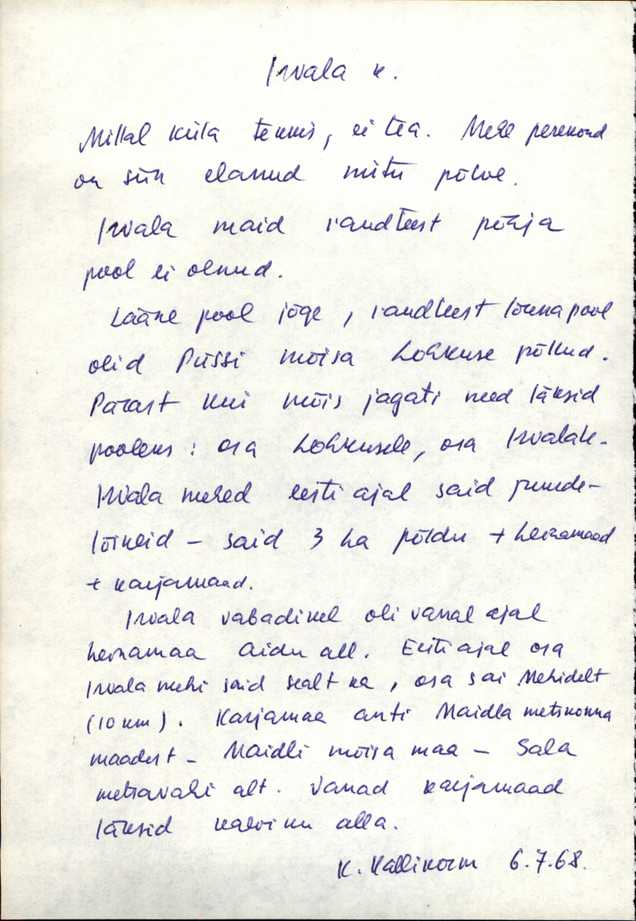 Irvala k.
Millal küla tekkis, ei tea. Meie perekond
on siin elanud mitu põlve.
Irvala maid raudteest põhja
pool ei olnud.
Lääne pool jõge, raudteest lõunapool
olid Püssi mõisa Lohkuse põllud.
Pärast kui mõis jagati need läksid
pooleks: osa Lohkusele, osa Irvalale.
Irvala mehed eesti ajal said juurde-
lõikeid - said 3 ha põldu + heinamaad
+ karjamaad.
Irvala vabadikel oli vanal ajal
heinamaa Aidu all. Eesti ajal osa
Irvala mehi said sealt ka, osa sai Mehidelt
(10 km). Karjamaa anti Maidla metskonna
maadest - Maidli mõisa maa - Sala
metsavahi alt. Vanad karjamaad
läksid karviku alla.
K. Kallikorm 6.7.68.